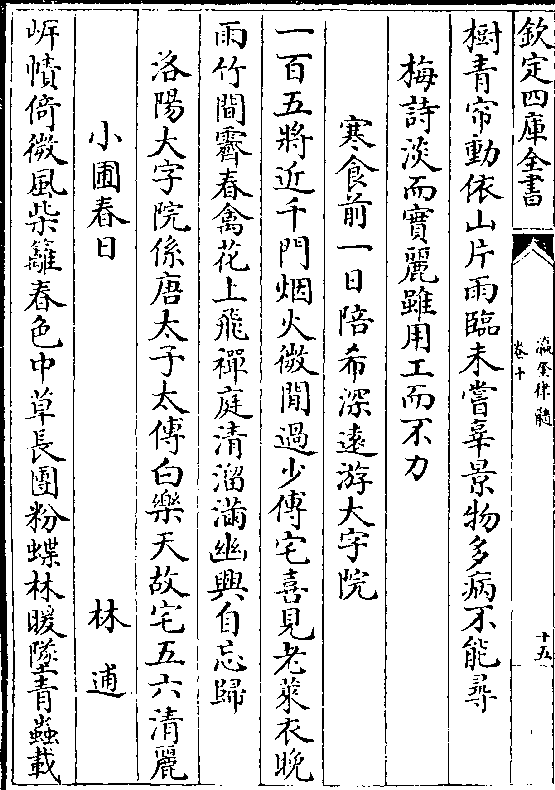 欽定四庫全書
瀛奎律髓
卷十
十五
樹青帘動依山片雨臨未嘗辜景物多病不能尋
梅詩淡而實麗雖用工而不力
寒食前一日陪希深遠游大字院
一百五將近千門烟火微閒過少傅宅喜見老萊衣晚
雨竹間霽春禽花上飛禪庭清溜滿幽興自忘歸
洛陽大字院係唐太子太傅白樂天故宅五六清麗
小圃春日
林逋
岸幘倚微風柴籬春色中草長團粉蝶林暖墜青蟲載